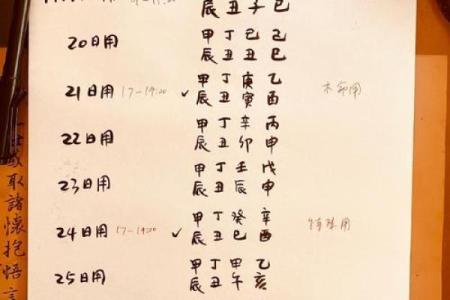 辰丑子巳
20日用
甲丁己己
辰丑丑巳
21日用 17-19:00 ✓
甲丁庚乙
辰丑寅酉
木命用
22日用
甲丁辛丙
辰丑卯申
23日用
甲丁壬戊
辰丑辰申
24日用 17-19:00 ✓
甲丁癸辛
辰丑巳酉
25日用
甲丁甲乙
辰丑午亥
取諸懷抱悟言